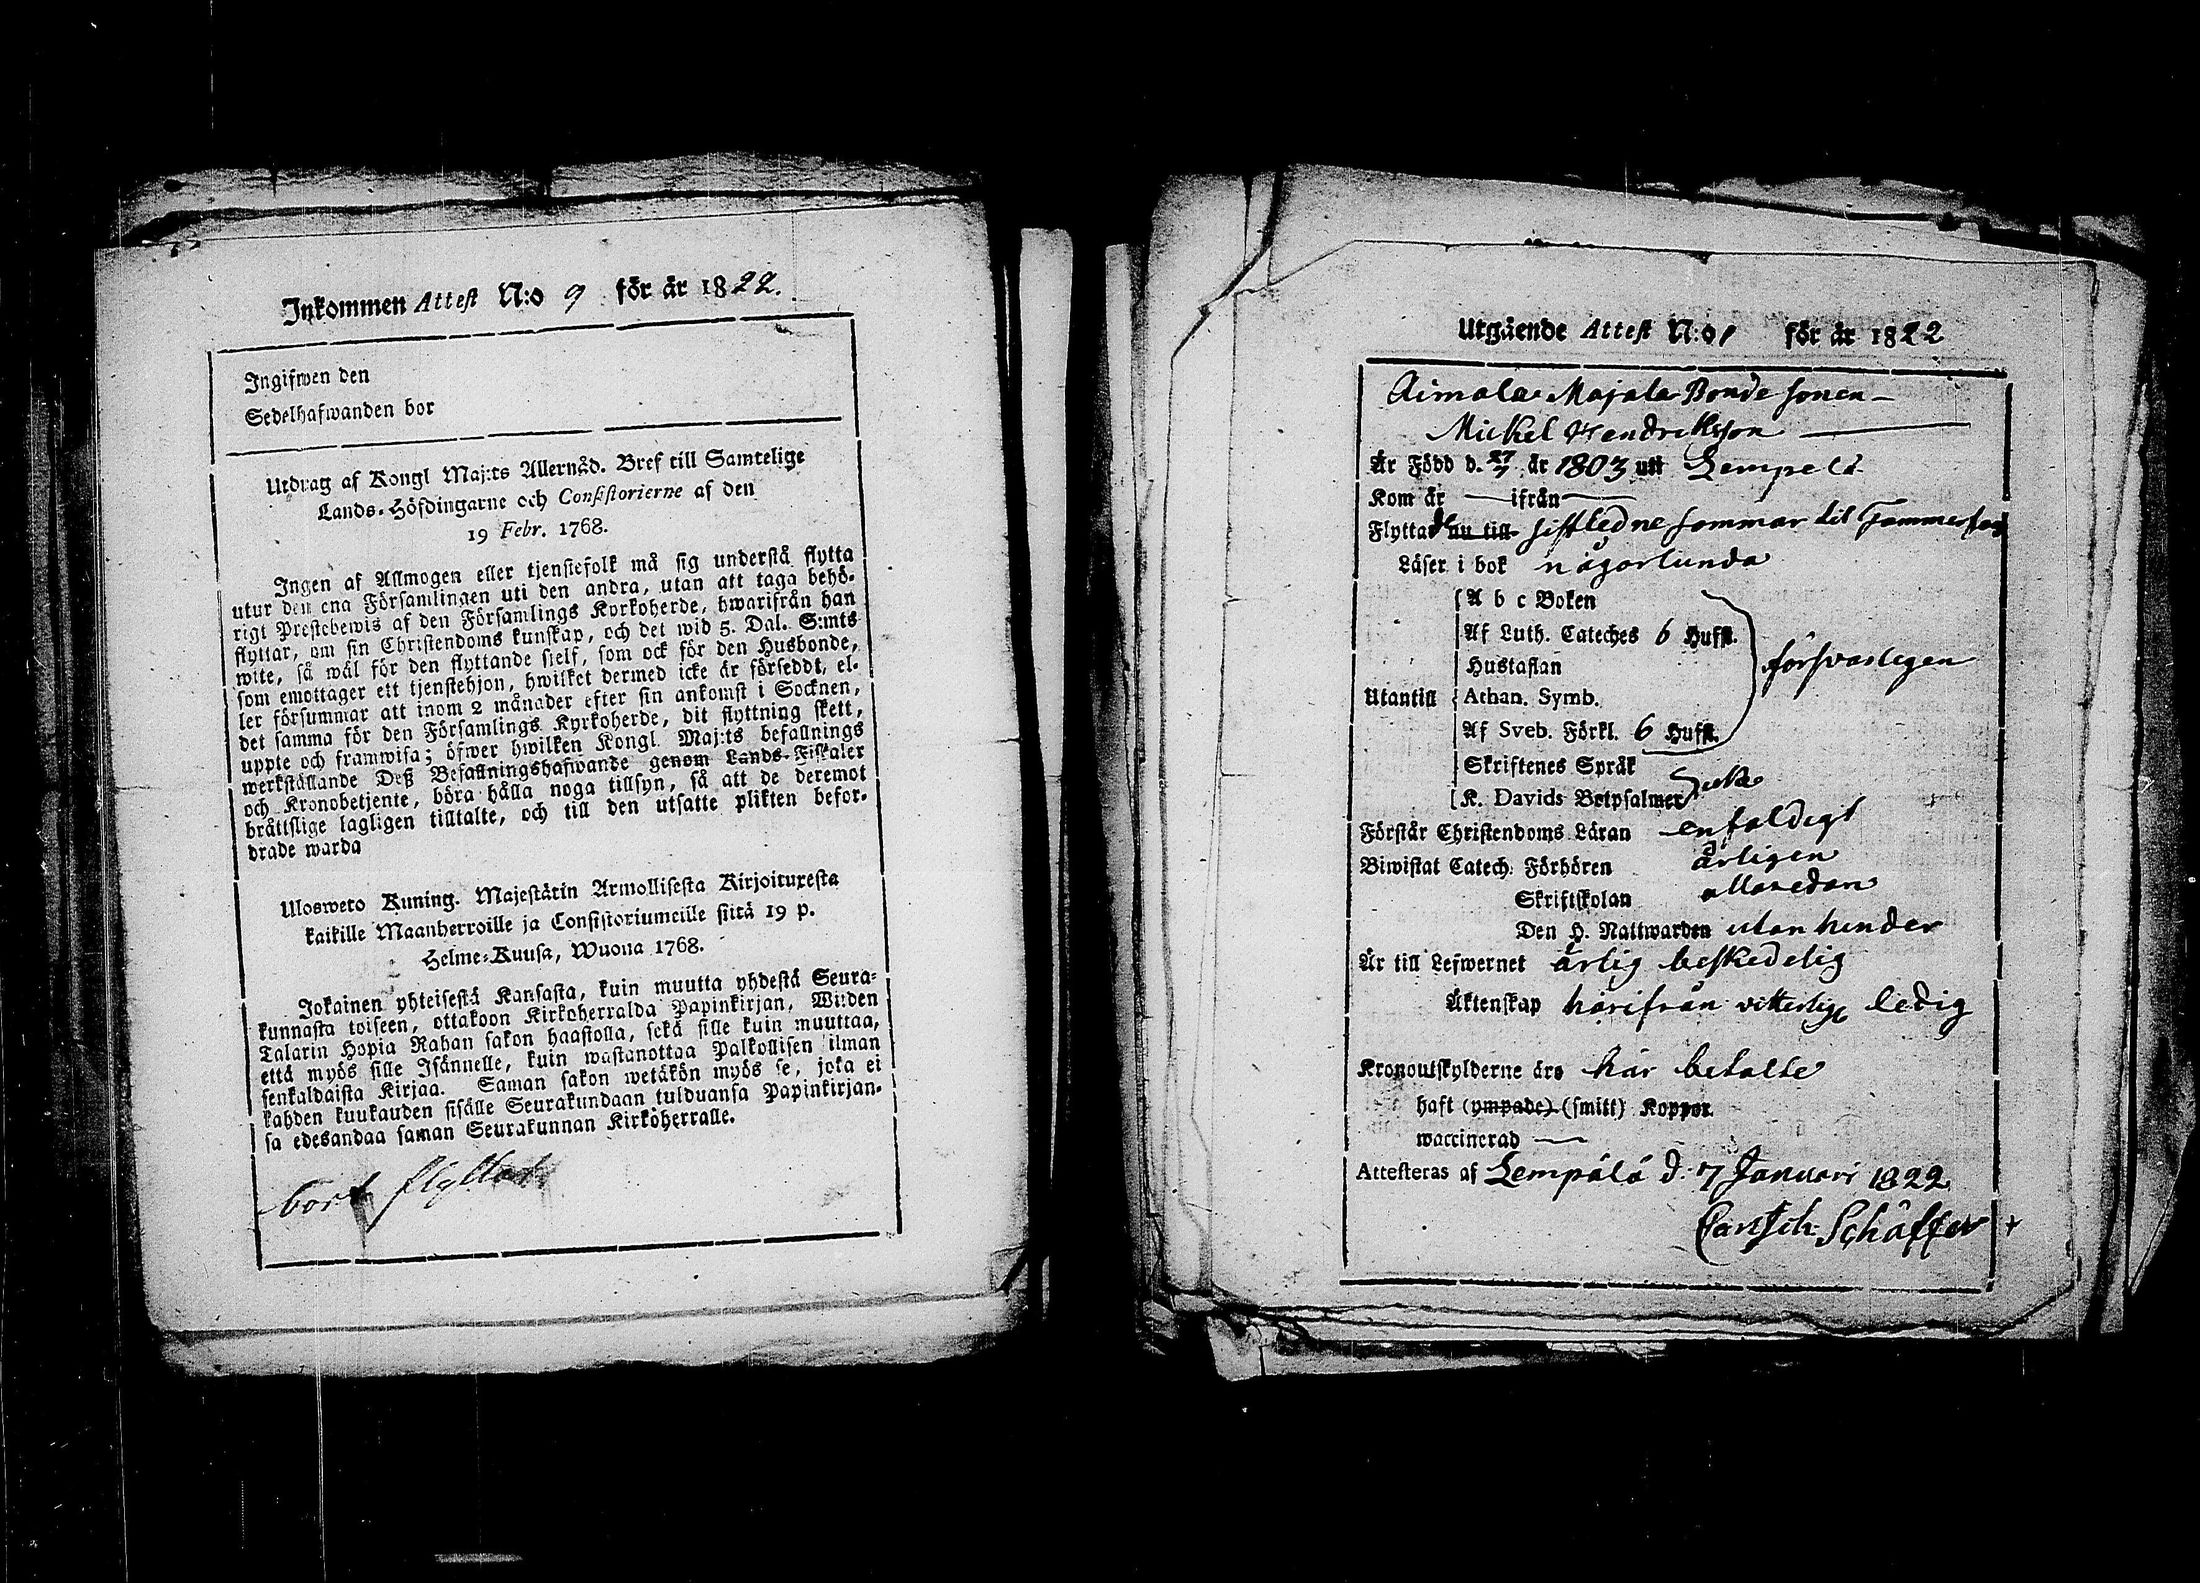 Inkommen Attest N:o 9 för år 1822.
Ingifwen den
Sedelhafwanden bor
Utdrag af Kongl Maj:ts Allernåd. Bref till Samtelige
Lands-Höfdingarne och Consistorierne af den
19 Febr. 1768.
Ingen af Allmogen eller tjenstefolk må sig understå flytta
utur den ena Församlingen uti den andra, utan att taga behö-
rigt Prestebewis af den Församlings Korkoherde, hwarifrån han
flyttar, om sin Christendoms kunskap, och det wid 5. Dal. S:mts
wite, så wäl för den flyttande sielf, som ock för den Husbonde,
som emottager ett tjenstehjon, hwilket dermed icke är försedt, el-
ler försummar att inom 2 månader efter sin ankomst i Socknen,
det samma för den Församlings Kyrkoherde, dit flyttning skett,
uppte och framwisa; öfwer hwilken Kongl Maj:ts befallnings
werkställande Deß Befallningshafwande genom Lands-Fiskaler
och Kronobetjente, böra hålla noga tillsyn, så att de deremot
bråttslige lagligen tilltalte, och till den utsatte plikten befor-
drade warda
Ulosweto Kuning. Majestätin Armollisesta Kirjoituxesta
kaikille Maanherroille ja Consistoriumeille siitä 19 p.
Helme-Kuusa, Wuona 1768.
Jokainen yhteisestä Kansasta, kuin muutta yhdestä Seura-
kunnasta toiseen, ottakoon Kirkoherralda Papinkirjan, Wiiden
Talarin Hopia Rahan sakon haastolla, sekä sille kuin muuttaa,
että myös sille Isännelle, kuin wastanottaa Palkollisen ilman
senkaldaista Kirjaa. Saman sakon wetäkön myös se, joka ei
kahden kuukauden sisälle Seurakundaan tulduansa Papinkirjan-
sa edesandaa saman Seurakunnan Kirkoherralle.
bort flyttat
Utgående Attest N:o 1 för år 1822
Aimala Majala Bonde sonen
Mickel Hendriksson
Är Född d. 27/7 år 1803 uti Lempelä
Kom år ifrån
Flyttade nu till sistledne sommar til Tammerfors
Läser i bok någorlunda
A b c Boken
Af Luth. Cateches 6 Hufst.
Hustaflan
försvarligen
Utantill Athan. Symb.
Af Sveb. Förkl. 6 Hufst.
Skriftenes Språk
K. Davids Botpsalmer icke
Förstår Christendoms Läran enfaldigt
Biwistat Catech: Förhören årligen
Skriftskolan allaredan
Den H. Nattwarden utan hinder
Är till Lefwernet ärlig beskedelig
Äktenskap härifrån vitterlig ledig
Kronoutskylderne äro här betalte
haft (ympade) (smitt) Koppor
waccinerad
Attesteras af Lempälä d: 7 Januari 1822
Schäffer